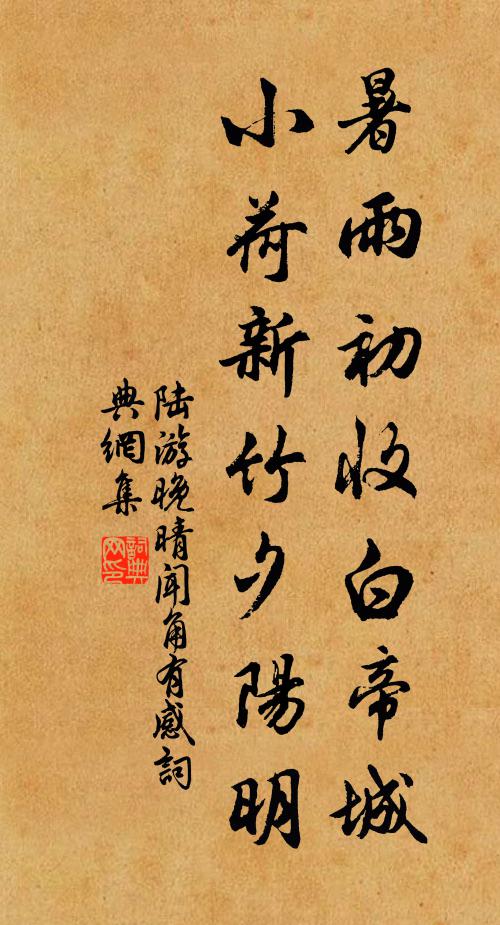 暑雨初收白帝城
小荷新竹夕陽明
陆游晚晴闻角有感詞
典網集
詞典
网印